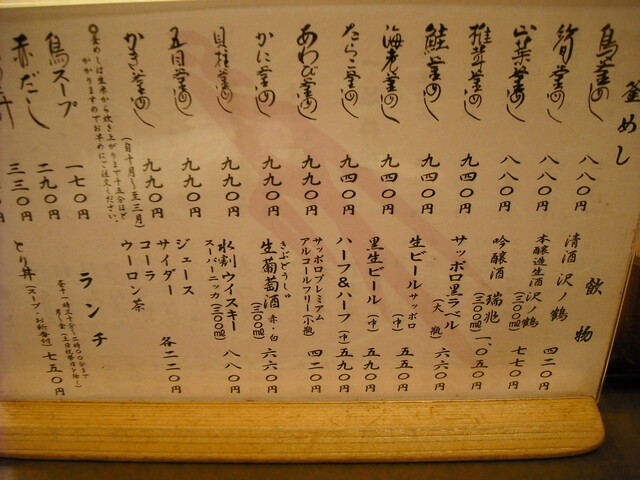 釜めし
鳥釜めし 八八〇円
筍釜めし 八八〇円
山菜釜めし 八八〇円
椎茸釜めし 九四〇円
鮭釜めし 九四〇円
海老釜めし 九四〇円
たらこ釜めし 九四〇円
あわび釜めし 九九〇円
かに釜めし 九九〇円
貝柱釜めし 九九〇円
五目釜めし 九九〇円
かき釜めし 九九〇円
(自十月〜至三月)
◎釜めしは生米から炊き上がりまで十五分ほど
かかりますのでお早めにご注文ください。
鳥スープ 一七〇円
赤だし 二九〇円
三三〇円
飲物
清酒 沢ノ鶴 四二〇円
本醸造生酒 沢ノ鶴 (300ml) 七七〇円
吟醸酒 瑞兆 (300ml) 一、〇五〇円
サッポロ黒ラベル (大瓶) 六六〇円
生ビール サッポロ (中) 五五〇円
黒生ビール (中) 五九〇円
ハーフ&ハーフ (中) 五九〇円
サッポロプレミアム
アルコールフリー(小瓶) 四二〇円
きぶどうしゅ
生葡萄酒 赤・白 (300ml) 六六〇円
水割ウイスキー
スーパーニッカ (300ml) 八八〇円
ジュース
サイダー 各二二〇円
コーラ
ウーロン茶
ランチ
月〜金(土日祝祭日除く)
とり丼 (スープ・お新香付) 七五〇円